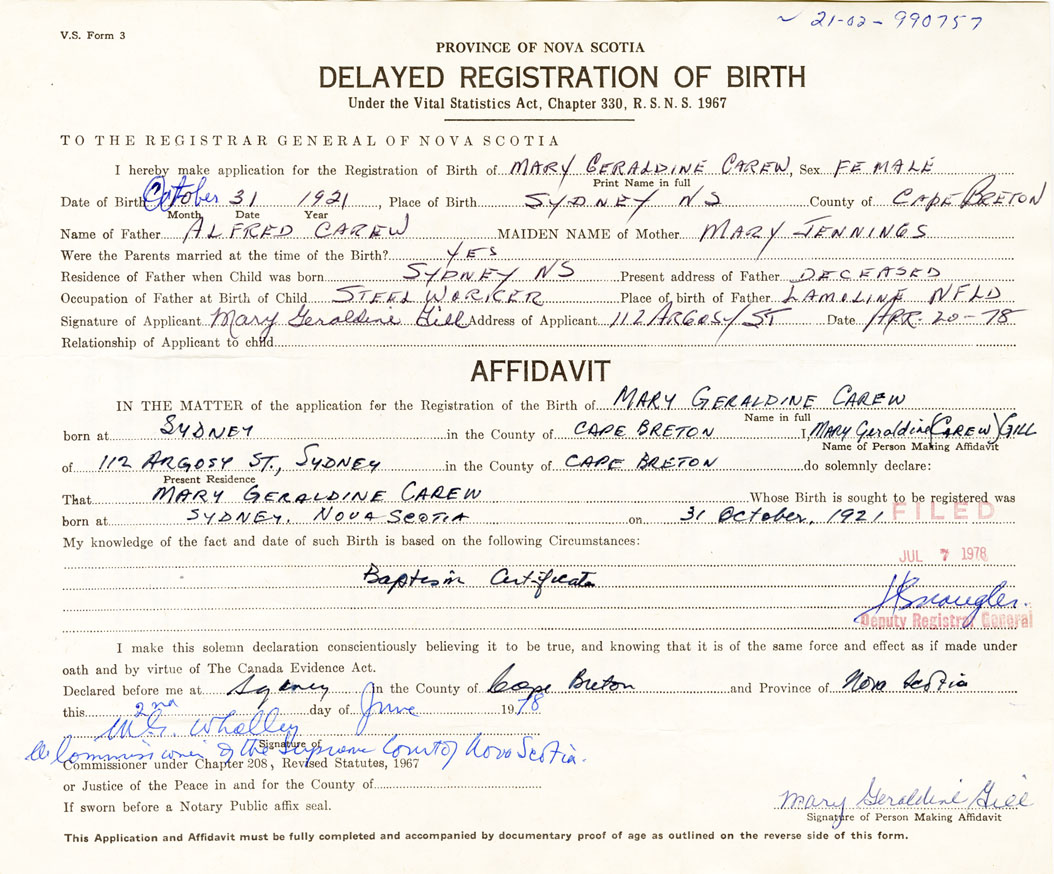 ~ 21-02-990757
V.S. Form 3
PROVINCE OF NOVA SCOTIA
DELAYED REGISTRATION OF BIRTH
Under the Vital Statistics Act, Chapter 330, R.S.N.S. 1967
TO THE REGISTRAR GENERAL OF NOVA SCOTIA
I hereby make application for the Registration of Birth of MARY GERALDINE CAREW, Sex FEMALE
Print Name in full
Date of Birth October 31 1921, Place of Birth SYDNEY NS County of CAPE BRETON
Month Date Year
Name of Father ALFRED CAREW MAIDEN NAME of Mother MARY JENNINGS
Were the Parents married at the time of the Birth? YES
Residence of Father when Child was born SYDNEY NS Present address of Father DECEASED
Occupation of Father at Birth of Child STEEL WORKER Place of birth of Father LAMOLINE NFLD
Signature of Applicant Mary Geraldine Gill Address of Applicant 112 ARGOSY ST Date APR. 20-78
Relationship of Applicant to child
AFFIDAVIT
IN THE MATTER of the application for the Registration of the Birth of MARY GERALDINE CAREW
Name in full
born at SYDNEY in the County of CAPE BRETON I, MARY Geraldine (CAREW) GILL
Name of Person Making Affidavit
of 112 ARGOSY ST., SYDNEY in the County of CAPE BRETON do solemnly declare:
Present Residence
That MARY GERALDINE CAREW Whose Birth is sought to be registered was
born at SYDNEY, NOVA SCOTIA on 31 October, 1921
FILED
My knowledge of the fact and date of such Birth is based on the following Circumstances:
JUL 7 1978
Baptism Certificate
Deputy Registrar General
I make this solemn declaration conscientiously believing it to be true, and knowing that it is of the same force and effect as if made under
oath and by virtue of The Canada Evidence Act.
Declared before me at Sydney in the County of Cape Breton and Province of Nova Scotia
this 2nd day of June 1978
M.G. Whalley
Signature of
a Commissioner of the Supreme Court of Nova Scotia.
Commissioner under Chapter 208, Revised Statutes, 1967
or Justice of the Peace in and for the County of
If sworn before a Notary Public affix seal.
Mary Geraldine Gill
Signature of Person Making Affidavit
This Application and Affidavit must be fully completed and accompanied by documentary proof of age as outlined on the reverse side of this form.